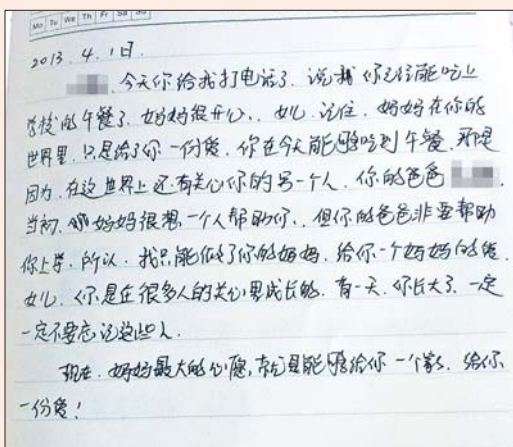 Mo Tu We Th Fr Sa Su
2013. 4. 1日.
今天你给我打电话了. 说 你已经能吃上
学校的午餐了. 妈妈很开心. 女儿. 记住. 妈妈在你的
世界里. 只是给了你一份爱. 你在今天能够吃到午餐. 那是
因为. 在这世界上还有关心你的另一个人. 你的爸爸
当初. 妈妈很想一个人帮助你. 但你的爸爸非要帮助
你上学. 所以. 我只能做了你的妈妈. 给你一个妈妈的爱
女儿. 你是在很多人的关心里成长的. 有一天. 你长大了. 一定
一定不要忘记这些人.
现在. 妈妈最大的心愿, 就是能够给你一个家. 给你
一份爱!